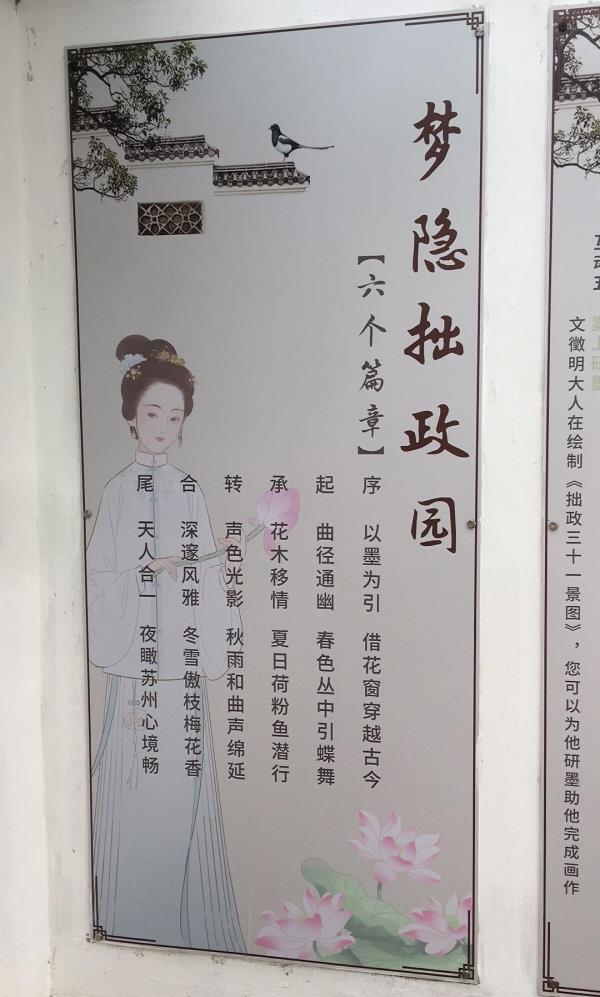 梦隐拙政园
【六个篇章】
序 以墨为引 借花窗穿越古今
起 曲径通幽 春色丛中引蝶舞
承 花木移情 夏日荷粉鱼潜行
转 声色光影 秋雨和曲声绵延
合 深邃风雅 冬雪傲枝梅花香
尾 天人合一 夜瞰苏州心境畅
互动五
案上研墨
文徵明大人在绘制《拙政三十一景图》，您可以为他研墨助他完成画作